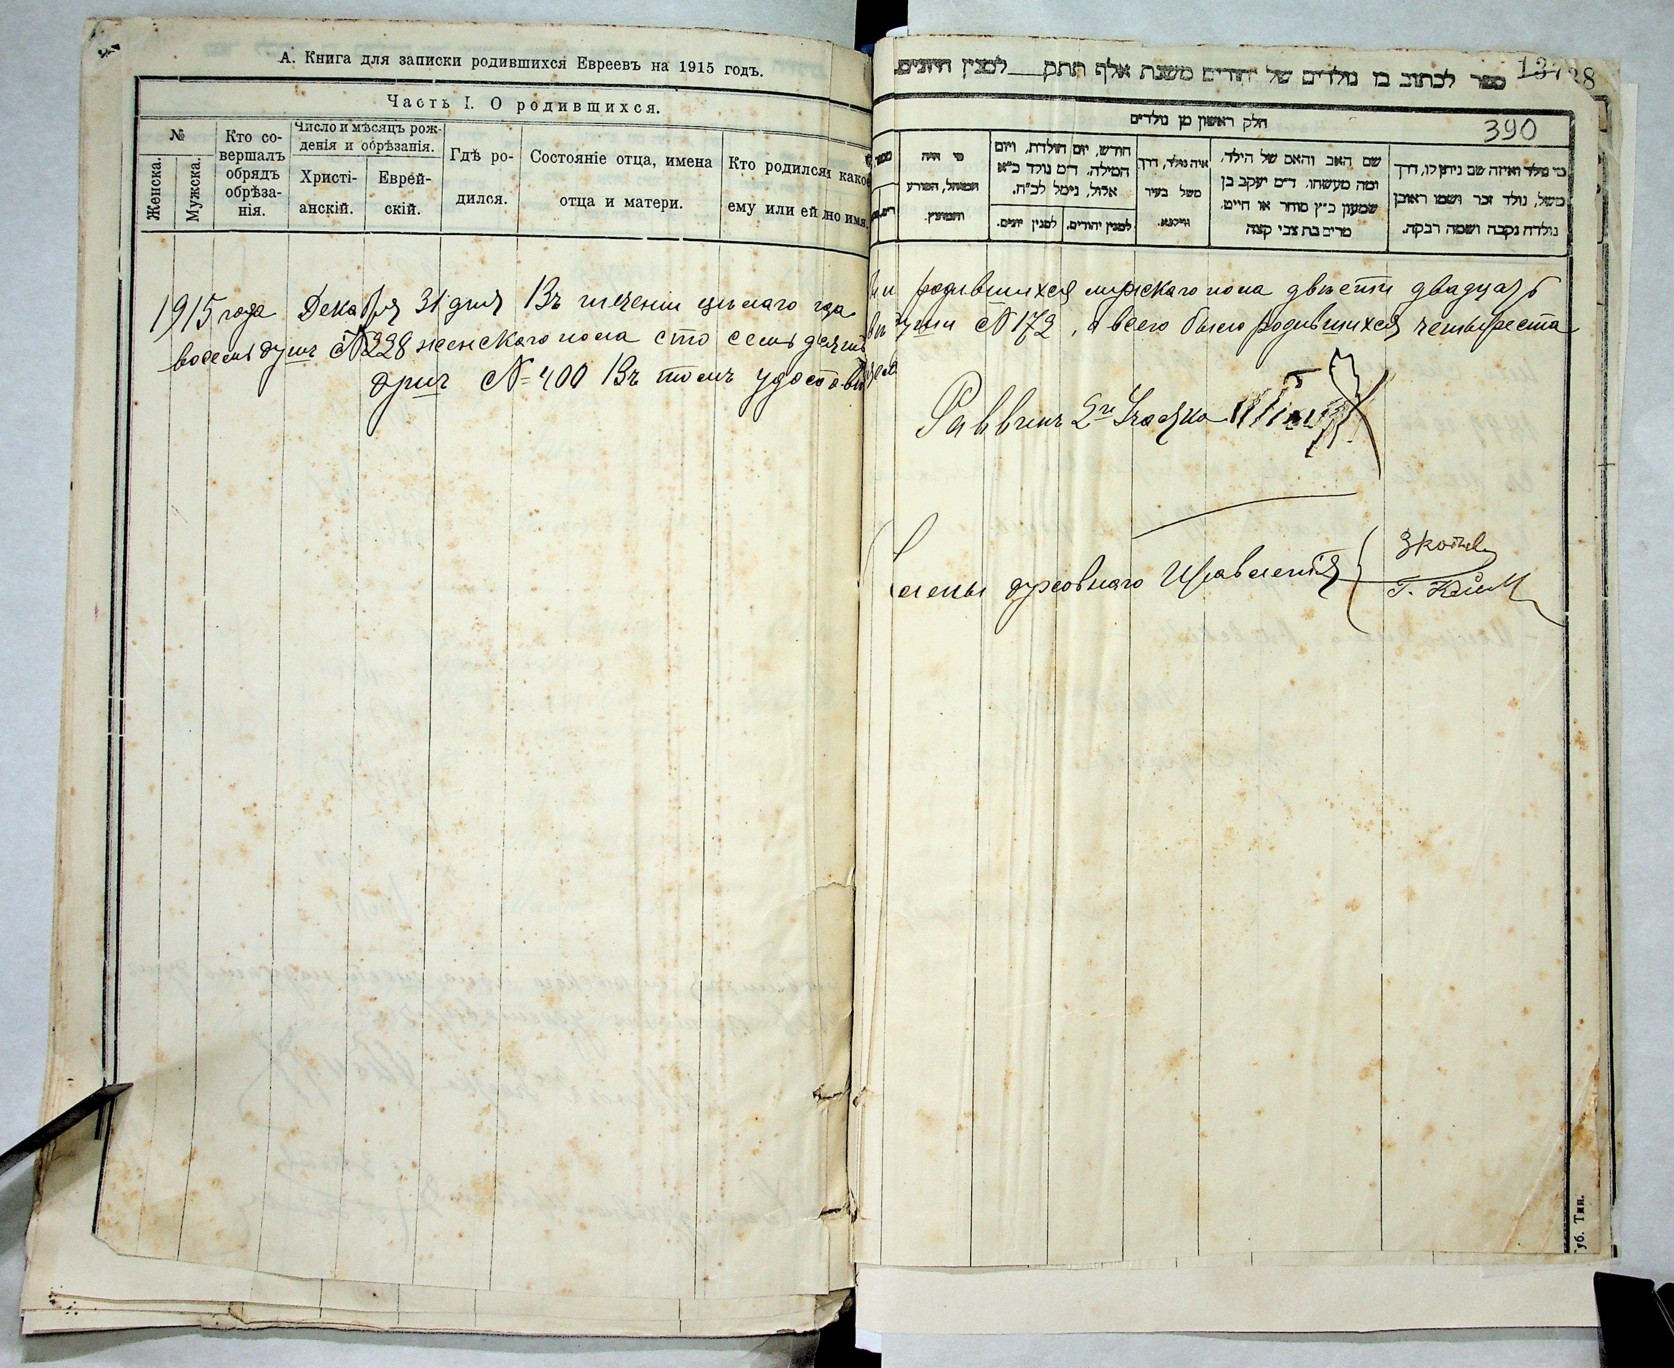 А. Книга для записки родившихся Евреевъ на 1915 годъ.
Часть I. О родившихся.
№
Женска.
Мужска.
Кто со-
вершалъ
обрядъ
обрѣза-
нія.
Число и мѣсяцъ рож-
денія и обрѣзанія.
Христі-
анскій.
Еврей-
скій.
Гдѣ ро-
дился.
Состояніе отца, имена
отца и матери.
Кто родился и какое
ему или ей дано имя.
ספר לכתוב בו נולדים של יהודים משנת אלף תתק___למנין היונים.
137 28
390
חלק ראשון מן נולדים
מי היה
המוהל, הפורע
והמוצץ.
חודש, יום הולדת, ויום
המילה. ד״מ נולד כ״א
אלול, נימל לכ״ח.
למנין יהודים.
למנין יונים.
איה נולד, דרך
משל בעיר
ווילנא.
שם האב והאם של הילד,
ומה מעשהו. ד״מ יעקב בן
שמעון כ״ץ סוחר או חייט,
מרים בת צבי קצב
מי נולד ואיזה שם ניתן לו, דרך
משל, נולד זכר ושמו ראובן
נולדה נקבה ושמה רבקה.
1915 года Декабря 31 дня Въ теченіи цѣлаго года родившихся мужскаго пола двѣсти двадцать
восемь душъ № 228 женскаго пола сто семьдесятъ души № 172, а всего было родившихся четыреста
душъ № 400 Въ томъ удостовѣряемъ
Раввинъ 2го Участка
Члены духовнаго Правленія
Губ. Тип.